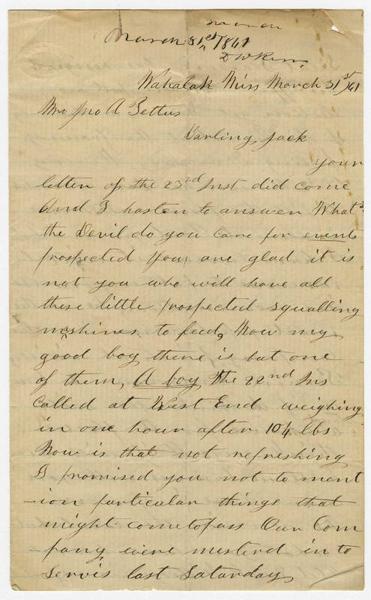 March 31st 1861
Wahalak Miss March 31st/61
Mr Jno A Pettus
Darling Jack
your
letter of the 23rd Inst did come
And I hasten to answer What
the Devil do you care for
prospected you are glad it is
not you who will have all
these little prospected squalling
mashines to feed, Now my
good boy there is but one
of them, A boy the 22nd Ins
called at West End weighing
in one hour after 10 1/4 lbs
Now is that not refreshing
I promised you not to ment
-ion particular things that
might cometopass Our Com
pany were musterd in to
Servis last Saturday